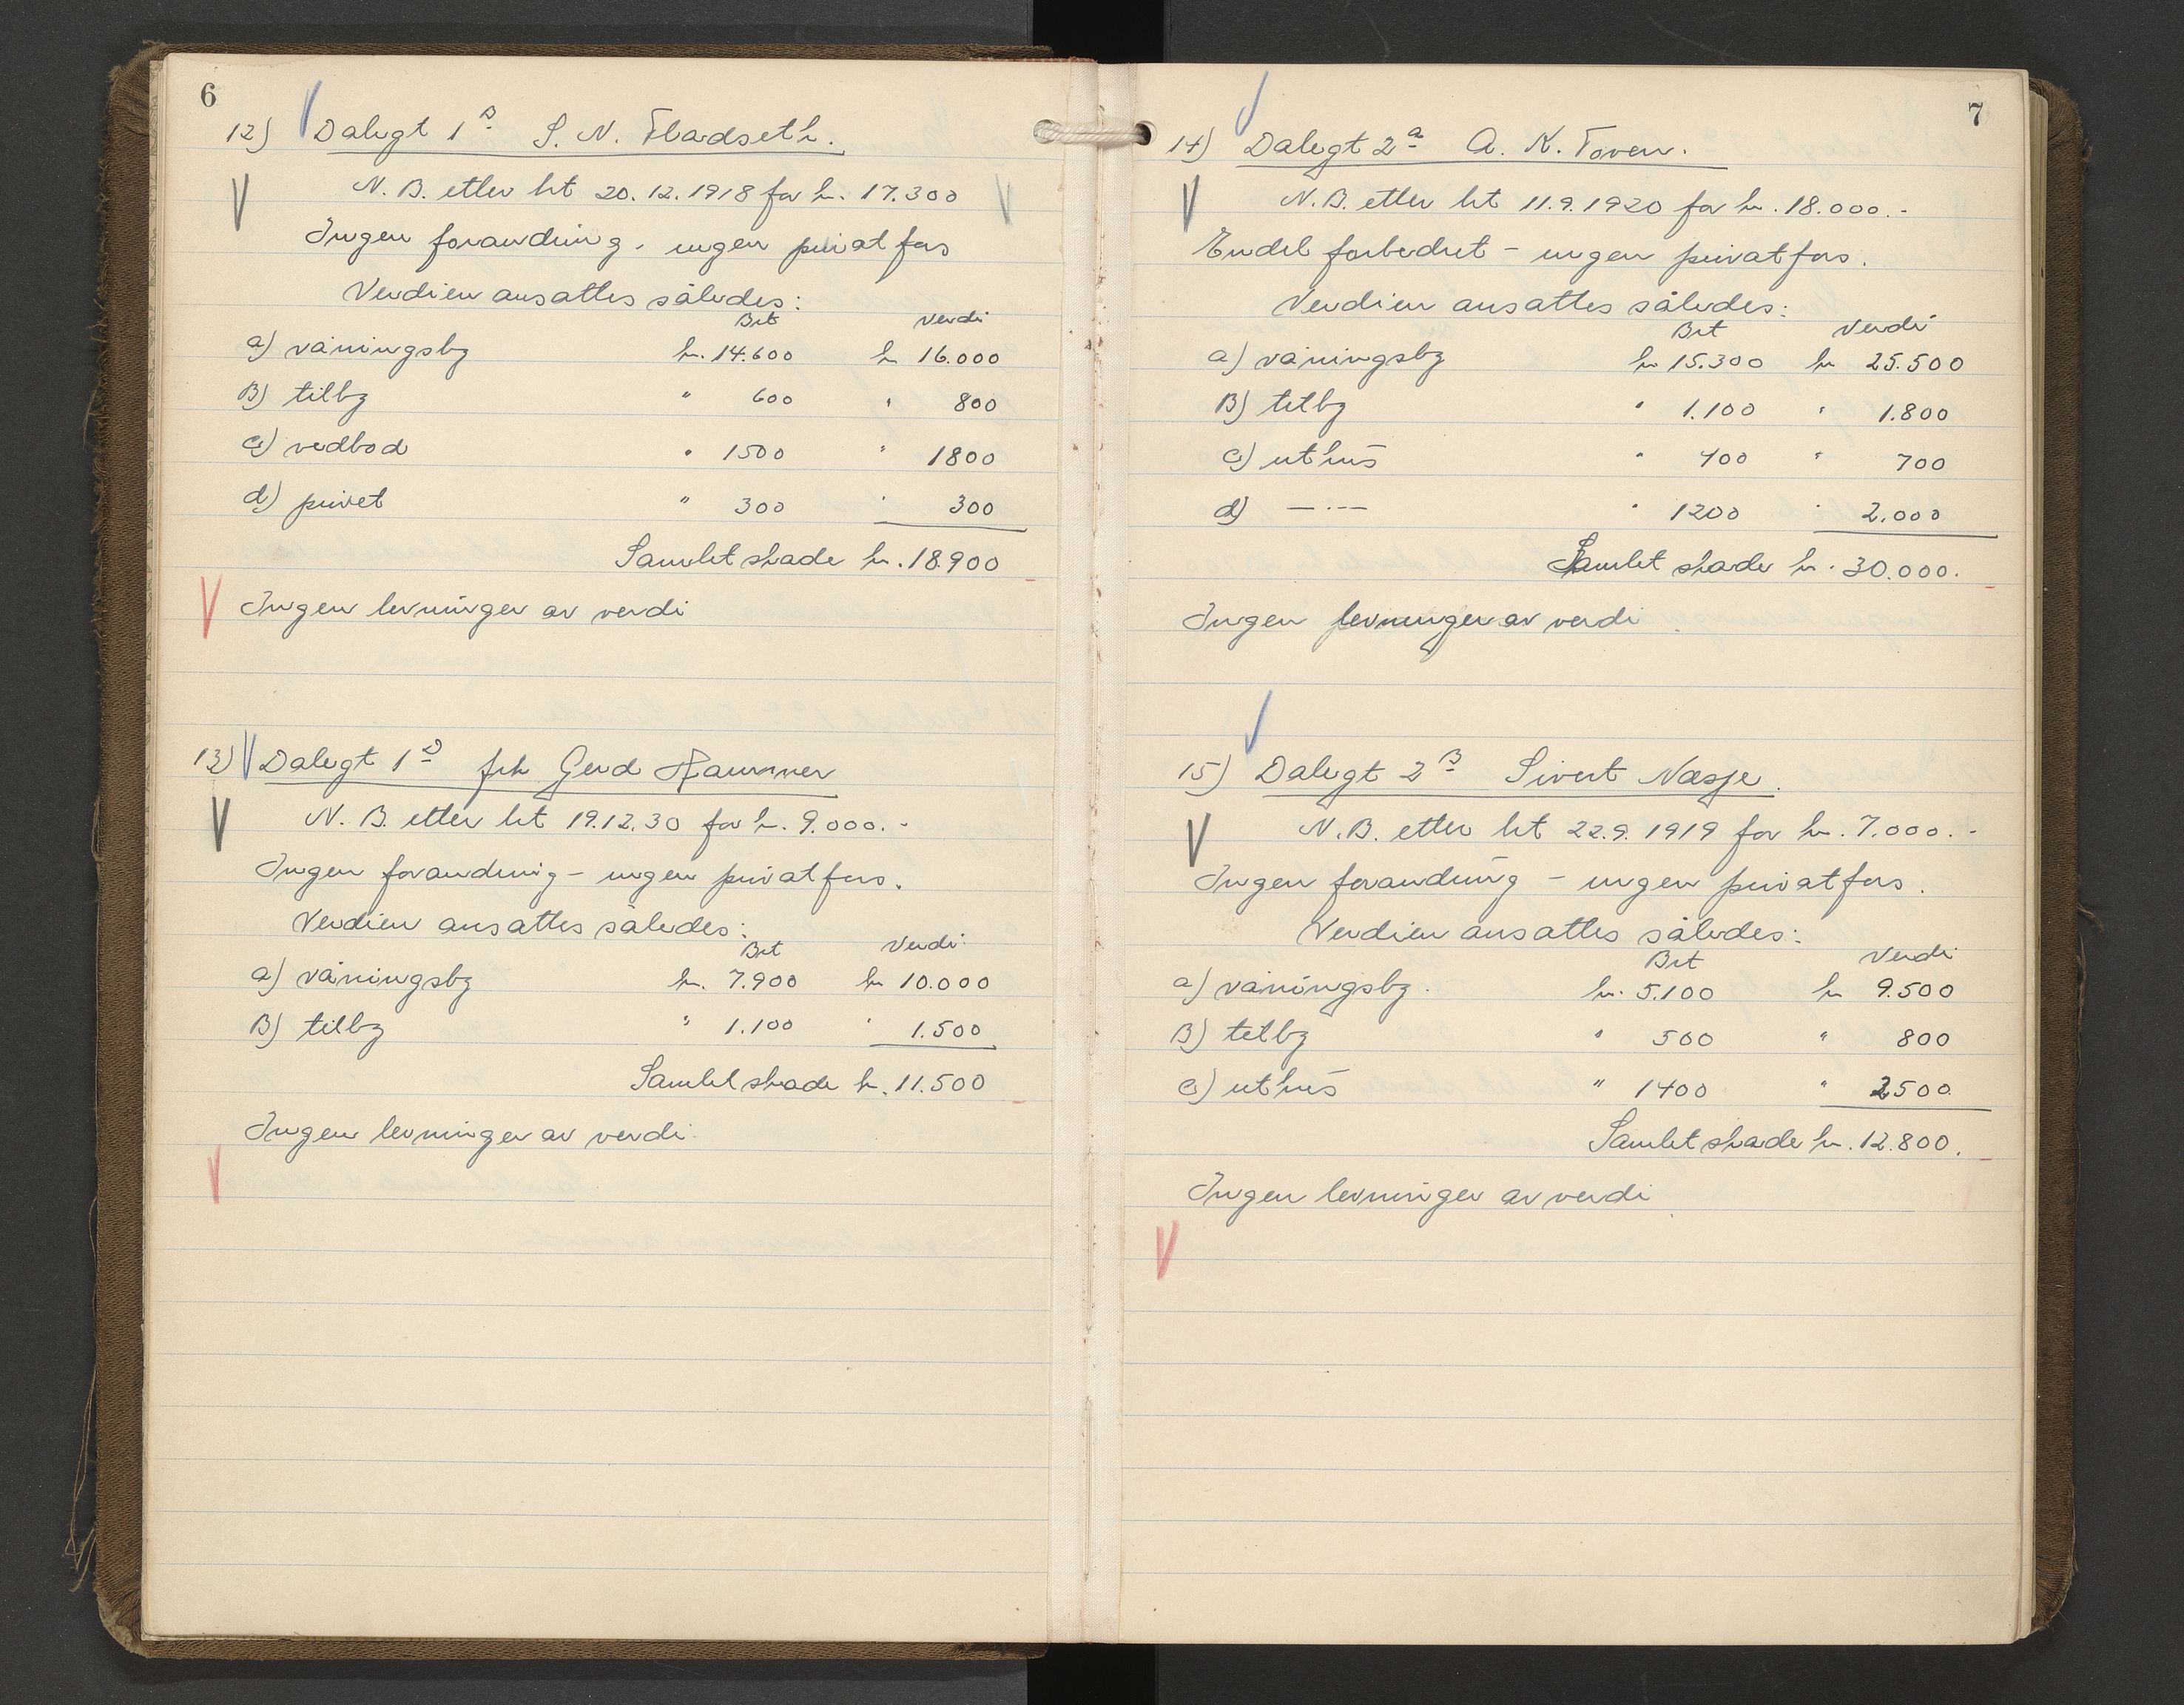 6
12) Dalegt 1 B S. N. Fladseth.
N. B. etter bt 20.12.1918 for kr. 17.300
Ingen forandring. ingen privat fors
Verdien ansattes således:
Bet Verdi
a) våningsbg kr. 14.600 kr 16.000
B) tilbg " 600 " 800
c) vedbod " 1500 " 1800
d) privet " 300 " 300
Samlet skade kr. 18.900
Ingen levninger av verdi
13) Dalegt 1 D frk Gerd Hammer
N. B. etter bt 19.12.30 for kr. 9.000.-
Ingen forandring - ingen privat fors.
Verdien ansattes således:
Bet Verdi
a) våningsbg kr. 7.900 kr 10.000
B) tilbg " 1.100 " 1.500
Samlet skade kr. 11.500
Ingen levninger av verdi
7
14) Dalegt 2 a A. K. Toven.
N. B. etter bt 11.9.1920 for kr. 18.000.-
Endel forbedret - ingen privat fors.
Verdien ansattes således:
Bet Verdi
a) våningsbg kr 15.300 kr 25.500
B) tilbg " 1.100 " 1.800
c) uthus " 400 " 700
d) —·— " 1200 " 2.000
Samlet skade kr. 30.000.
Ingen levninger av verdi
15) Dalegt 2 B Sivert Næsje.
N. B. etter bt 22.9.1919 for kr. 7.000.-
Ingen forandring - ingen privat fors.
Verdien ansattes således:
Bet Verdi
a) våningsbg. kr. 5.100 kr 9.500
B) tilbg " 500 " 800
c) uthus " 1400 " 2500.
Samlet skade kr. 12.800.
Ingen levninger av verdi